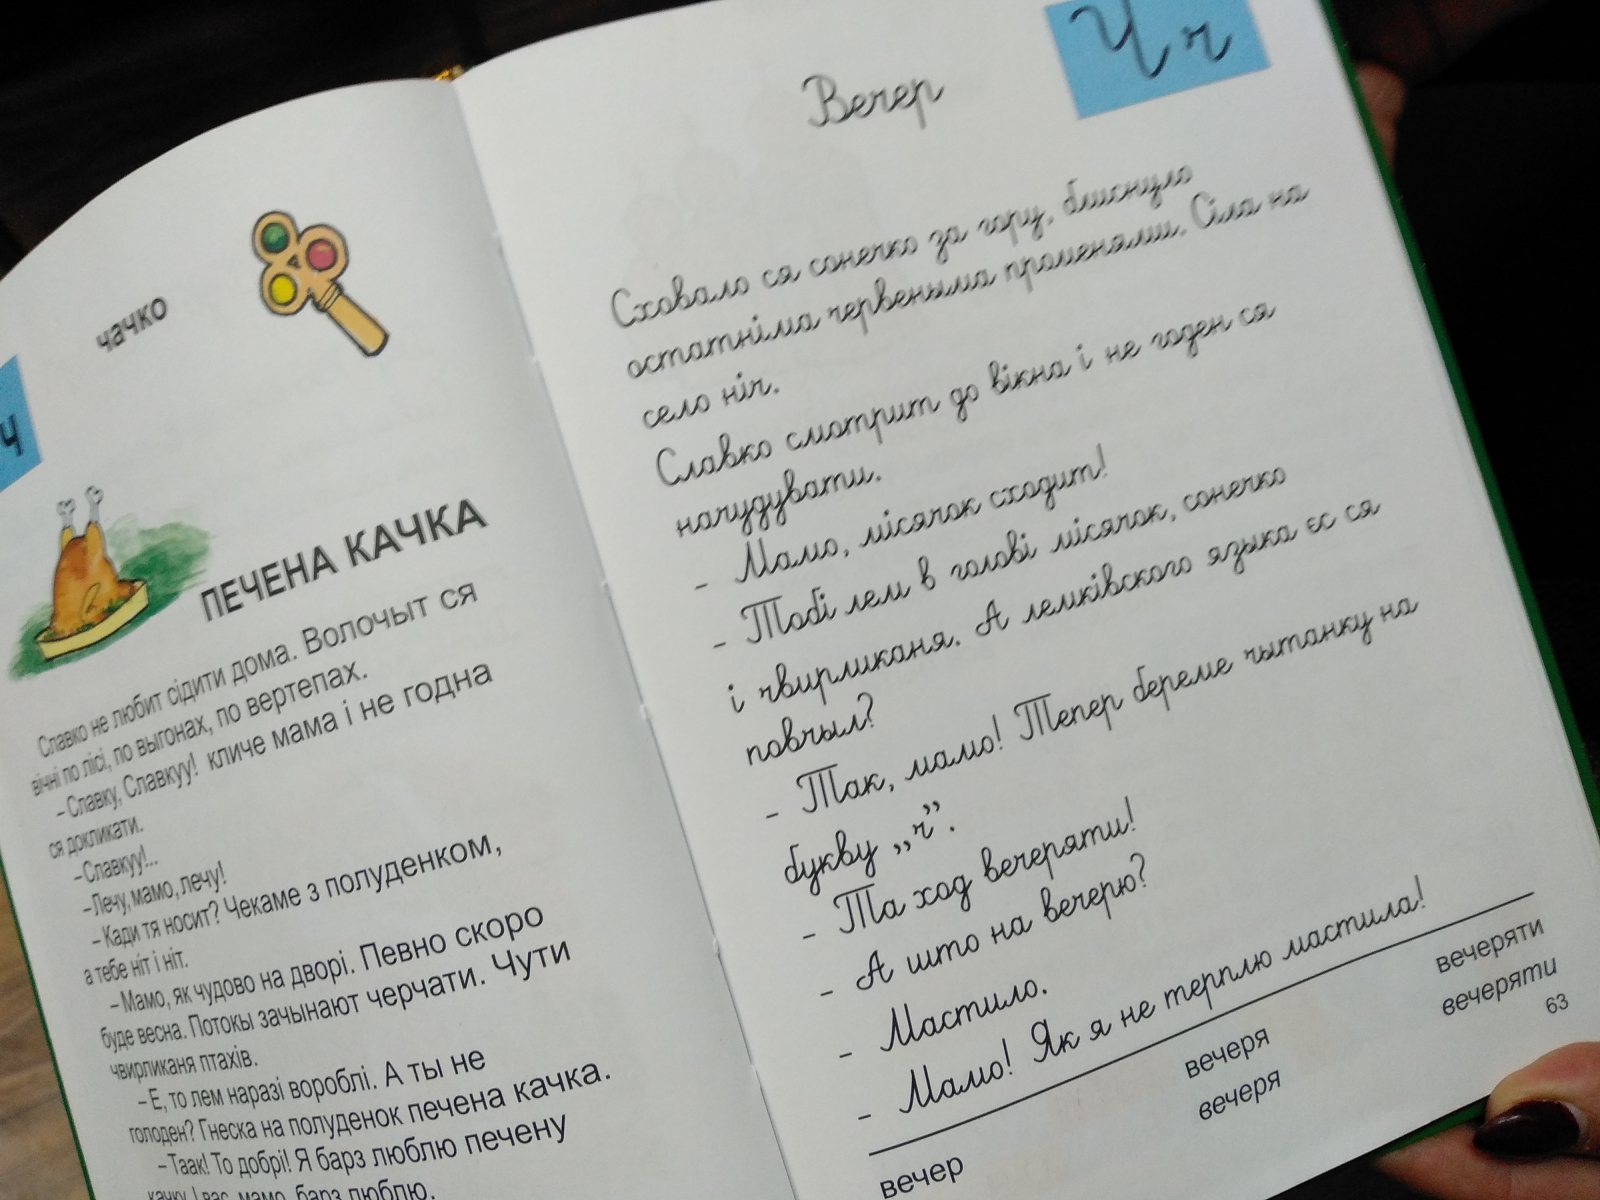 ч
чачко
ПЕЧЕНА КАЧКА
Славко не любит сідити дома. Волочыт ся
вічні по лісі, по выгонах, по вертепах.
– Славку, Славкуу! кличе мама і не годна
ся докликати.
– Славкуу!...
– Лечу, мамо, лечу!
– Кади тя носит? Чекаме з полуденком,
а тебе ніт і ніт.
– Мамо, як чудово на дворі. Певно скоро
буде весна. Потокы зачынают черчати. Чути
чвирликаня птахів.
– Е, то лем наразі вороблі. А ты не
голоден? Гнеска на полуденок печена качка.
– Таак! То добрі! Я барз люблю печену
качку. І вас, мамо, барз люблю.
Ч ч
Вечер
Сховало ся сонечко за гору, блиснуло
остатніма червеныма променями. Сіла на
село ніч.
Славко смотрит до вікна і не годен ся
начудувати.
– Мамо, місячок сходит!
– Тобі лем в голові місячок, сонечко
і чвирликаня. А лемківского языка єс ся
повчыл?
– Так, мамо! Тепер береме чытанку на
букву „ч”.
– Та ход вечеряти!
– А што на вечерю?
– Мастило.
– Мамо! Як я не терплю мастила!
вечер
вечеря
вечеря
вечеряти
вечеряти
63